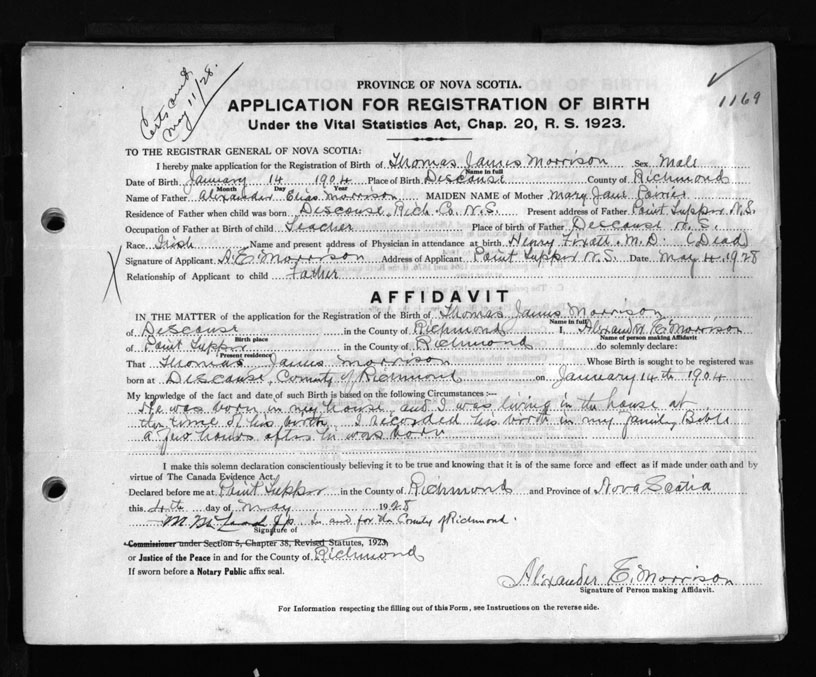 Certs and
May 11/28.
1169
PROVINCE OF NOVA SCOTIA.
APPLICATION FOR REGISTRATION OF BIRTH
Under the Vital Statistics Act, Chap. 20, R. S. 1923.
TO THE REGISTRAR GENERAL OF NOVA SCOTIA:
I hereby make application for the Registration of Birth of Thomas James Morrison Sex Male
Name in full
Date of Birth January 14 1904 Place of Birth Descouse County of Richmond
Month Day Year
Name of Father Alexander Elias Morrison MAIDEN NAME of Mother Mary Jane
Residence of Father when child was born Descouse, Rich. Co. N.S. Present address of Father Point Tupper N.S.
Occupation of Father at Birth of child Teacher Place of birth of Father Descouse N.S.
Race Irish Name and present address of Physician in attendance at birth Henry M.D. (Dead)
Signature of Applicant A. E. Morrison Address of Applicant Point Tupper N.S. Date May 4. 1928
Relationship of Applicant to child Father
AFFIDAVIT
IN THE MATTER of the application for the Registration of the Birth of Thomas James Morrison
Name in full
of Descouse in the County of Richmond I, Alexander E. Morrison
Birth place Name of person making Affidavit
of Point Tupper in the County of Richmond do solemnly declare:
Present residence
That Thomas James Morrison Whose Birth is sought to be registered was
born at Descouse, County of Richmond on January 14th 1904
My knowledge of the fact and date of such Birth is based on the following Circumstances :—
He was born in my house, and I was living in the house at
the time of his birth. I recorded his birth in my family Bible
a few hours after he was born
I make this solemn declaration conscientiously believing it to be true and knowing that it is of the same force and effect as if made under oath and by
virtue of The Canada Evidence Act.
Declared before me at Point Tupper in the County of Richmond and Province of Nova Scotia
this 4th day of May 1928
JP in and for the County of Richmond.
Signature of
Commissioner under Section 5, Chapter 38, Revised Statutes, 1923,
or Justice of the Peace in and for the County of Richmond
If sworn before a Notary Public affix seal.
Alexander E. Morrison
Signature of Person making Affidavit.
For Information respecting the filling out of this Form, see Instructions on the reverse side.